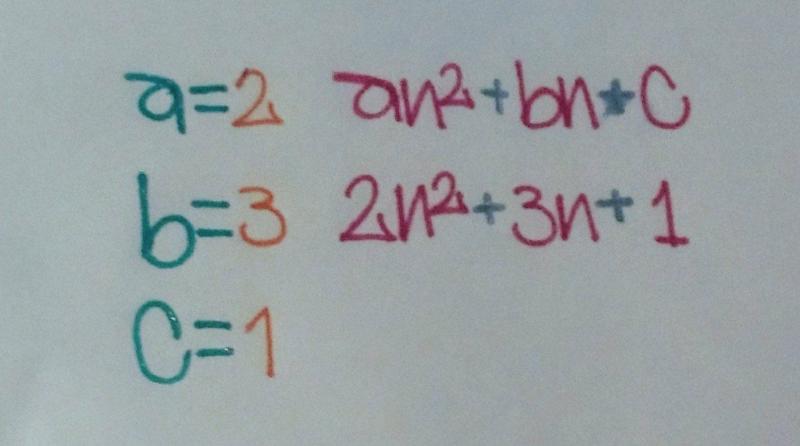 a=2 an²+bn+c
b=3 2n²+3n+1
c=1